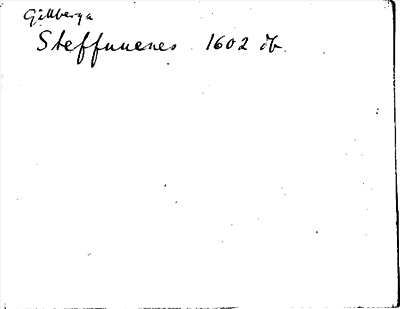 Gillberga
Steffunenes 1602 öb.